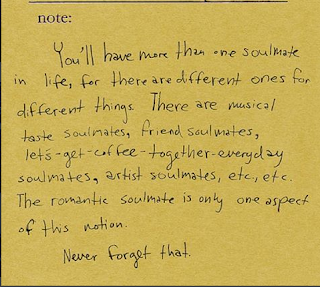 note:
You'll have more than one soulmate
in life, for there are different ones for
different things. There are musical
taste soulmates, friend soulmates,
let's-get-coffee-together-everyday
soulmates, artist soulmates, etc, etc.
The romantic soulmate is only one aspect
of this notion.
Never forget that.